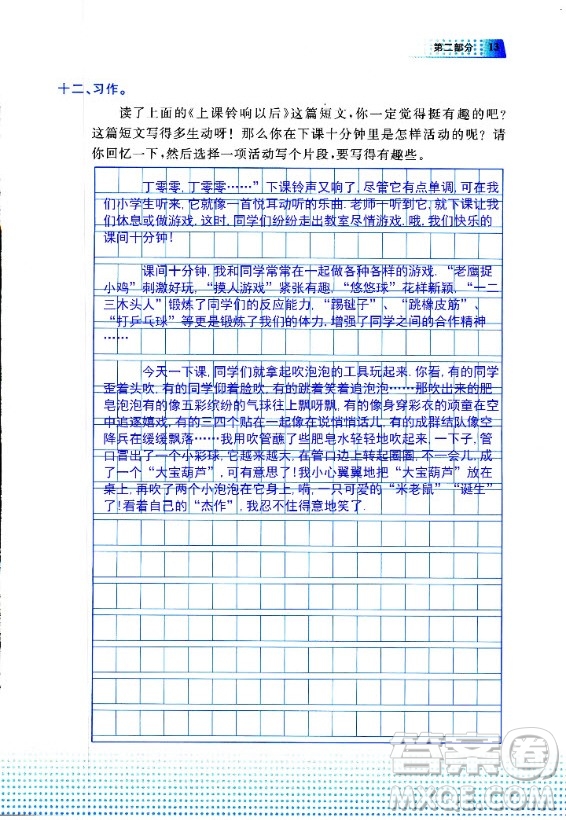 第二部分 13
十二、习作。
读了上面的《上课铃响以后》这篇短文，你一定觉得挺有趣的吧？
这篇短文写得多生动呀！那么你在下课十分钟里是怎样活动的呢？请
你回忆一下，然后选择一项活动写个片段，要写得有趣些。
丁零零，丁零零……”下课铃声又响了，尽管它有点单调，可在我
们小学生听来，它就像一首悦耳动听的乐曲．老师一听到它，就下课让我
们休息或做游戏，这时，同学们纷纷走出教室尽情游戏．我们快乐的
课间十分钟！
课间十分钟，我和同学常常在一起做各种各样的游戏．“老鹰捉
小鸡”刺激好玩，“摸人游戏”紧张有趣，“悠悠球”花样新颖，“一二
三木头人”锻炼了同学们的反应能力，“踢毽子”、“跳橡皮筋”、
“打乒乓球”等更是锻炼了我们的体力，增强了同学之间的合作精神
……
今天一下课，同学们就拿起吹泡泡的工具玩起来．你看，有的同学
歪着头吹，有的同学仰着脸吹，有的同学追着泡泡……那吹出来的肥
皂泡泡有的像五彩缤纷的气球往上飘呀飘，有的像身穿彩衣的顽童在空
中追逐嬉戏，有的三四个依偎在一起像在说悄悄话儿，有的成群结队像空
降兵在缓缓飘落……我用吹管蘸了些肥皂水轻轻地吹起来，一下子，管
口冒出了一个小彩球，它越来越大，在管口边上转起圈圈，不一会儿，
成了一个“大宝葫芦”，可有意思了！我小心翼翼地把“大宝葫芦”放在
桌上，再吹了两个小泡泡在它身上，嗬，一只可爱的“米老鼠”“诞生”了！
看着自己的“杰作”，我忍不住得意地笑了．
答案圈
MXQE.COM